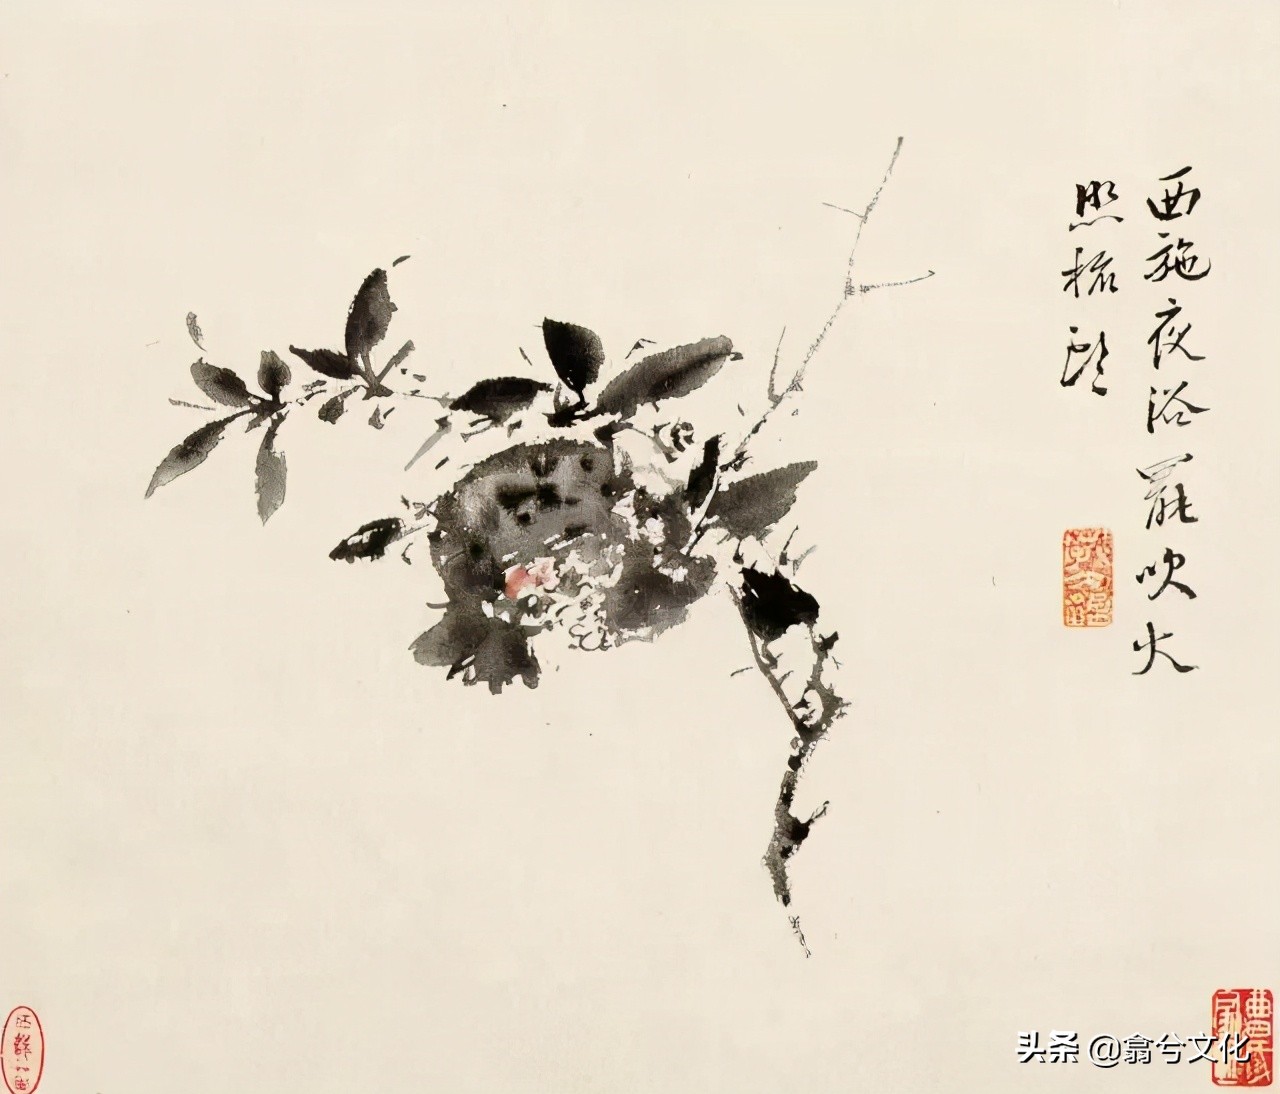 西施夜浴罷吹火
照梳頭
头条 @翕兮文化